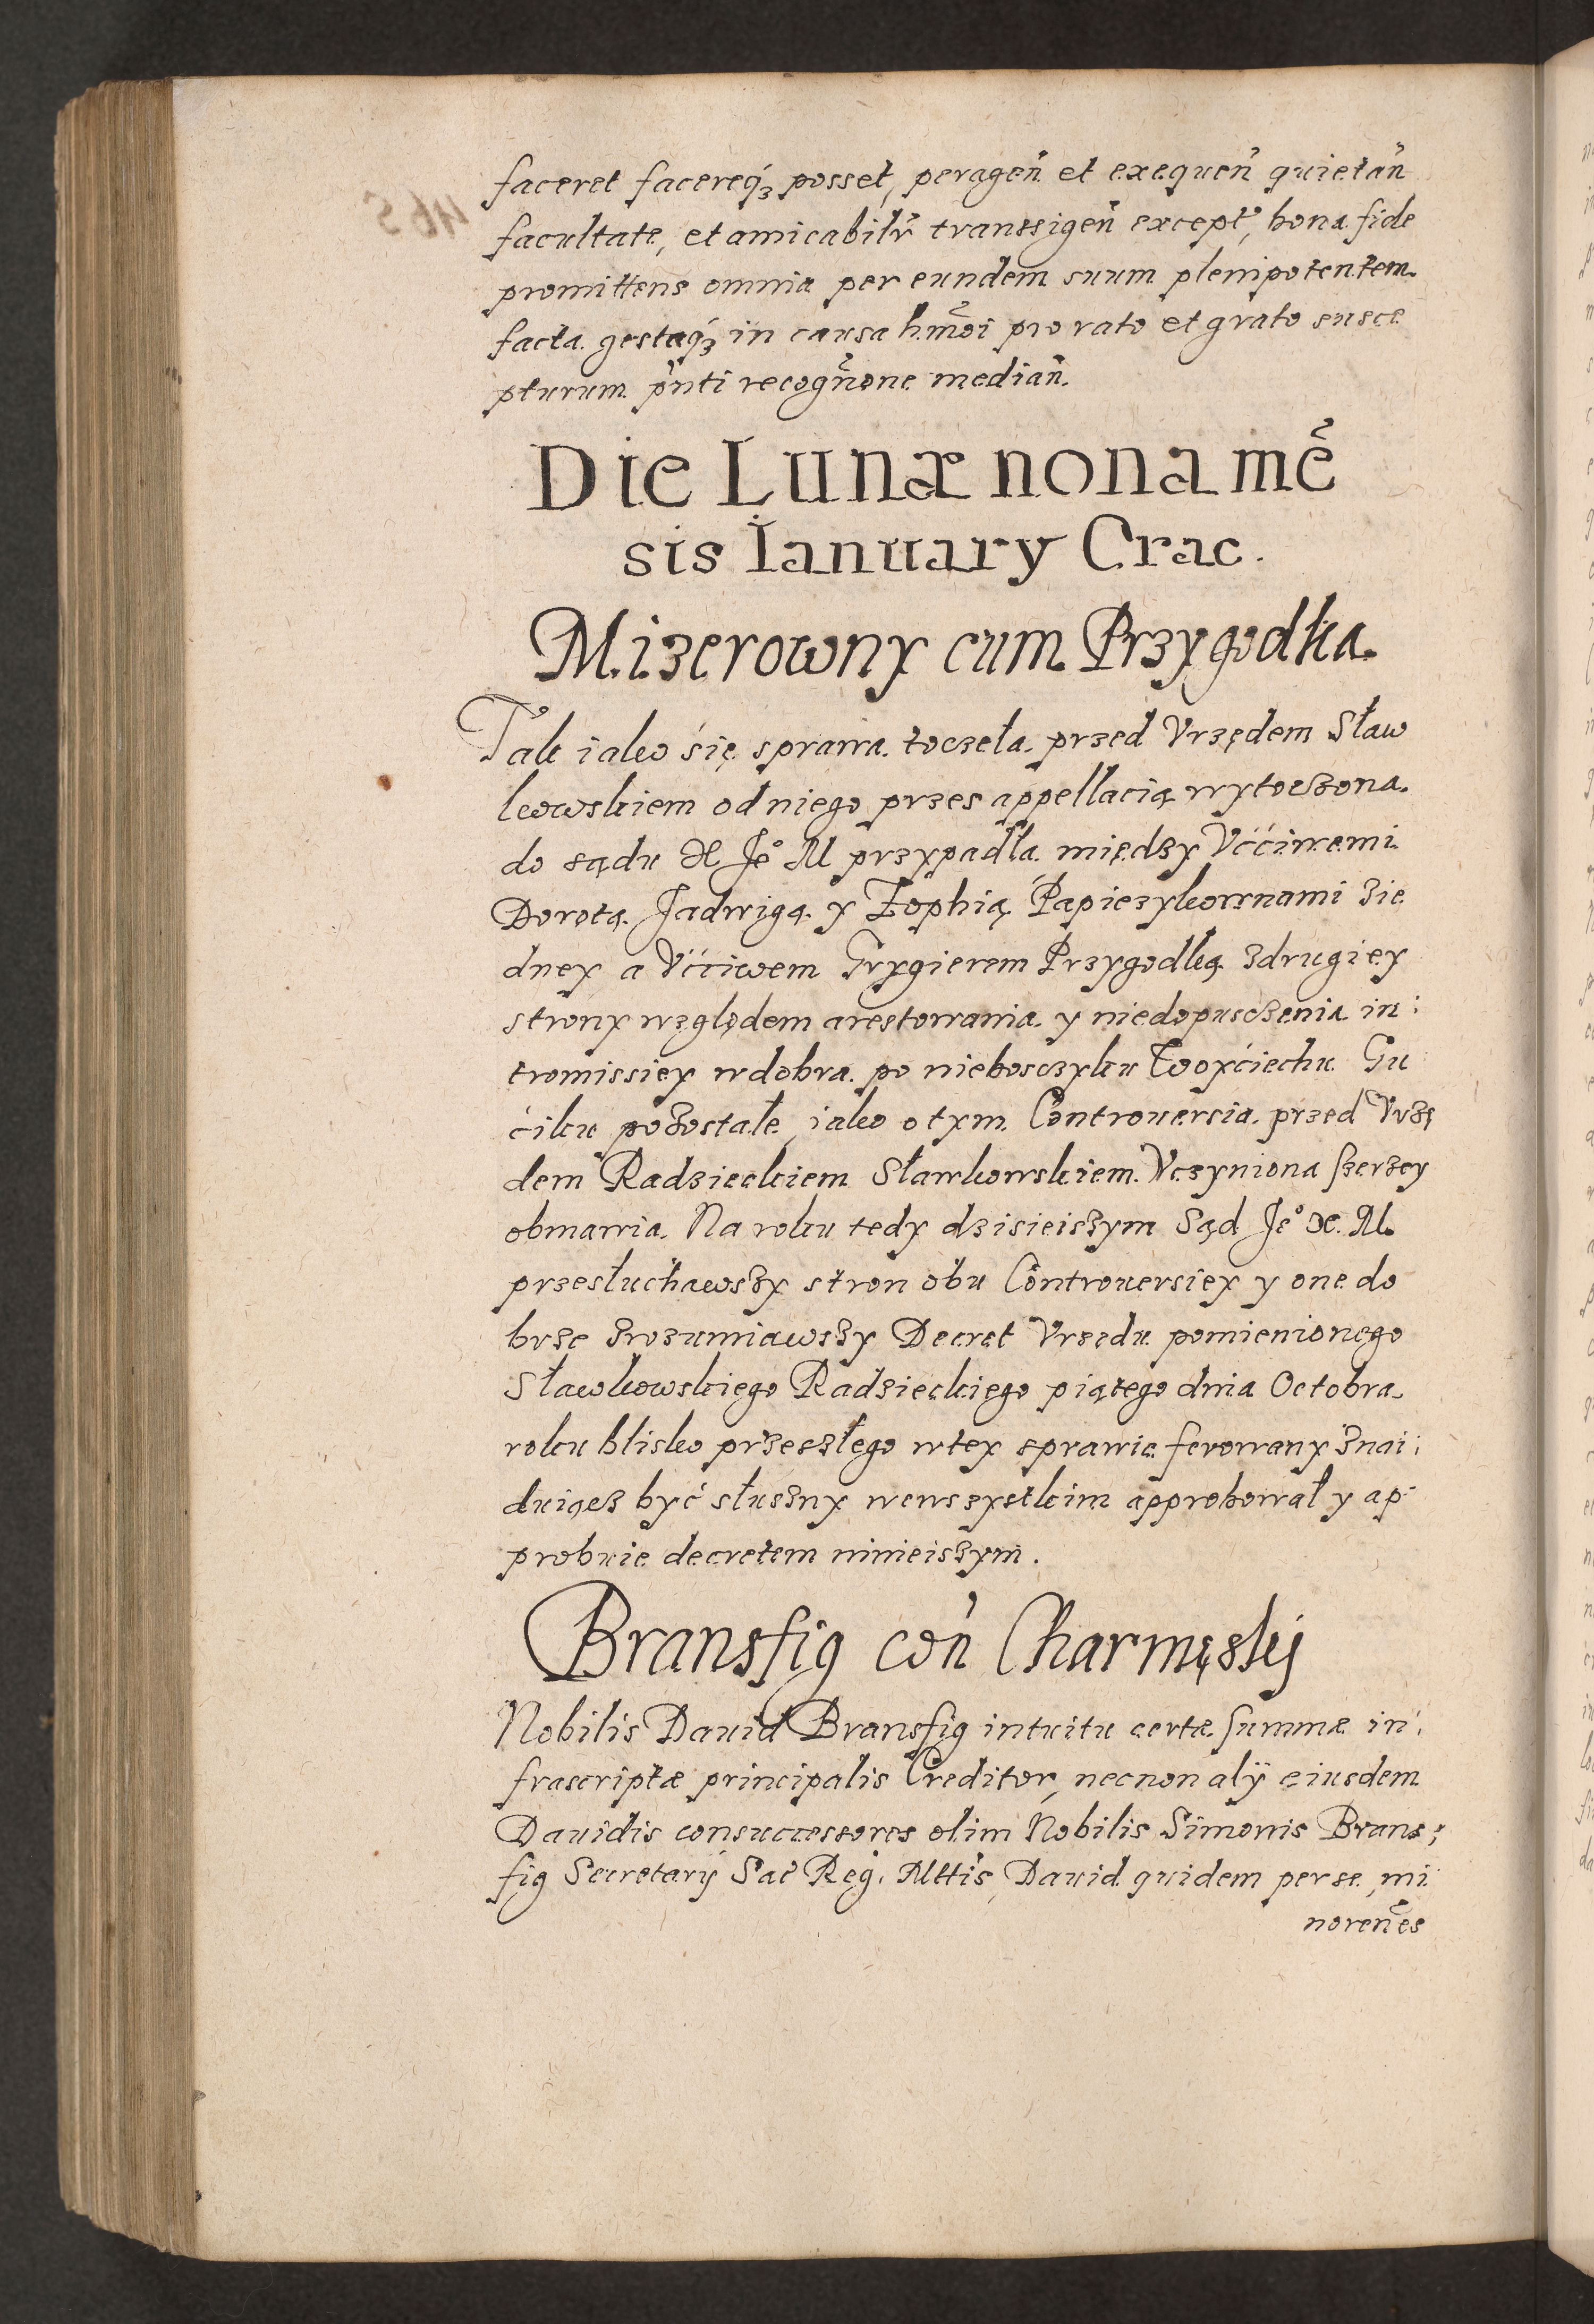 faceret facereq́ʒ posset, peragen̄ et exequen̄ quietan̄
facultate, et amicabilr̄ transsigen̄ except̄, bona fide
promittens omnia per eundem suum plenipotentem
facta gestaq́ʒ in causa hm̄oi pro rato et grato susce
pturum p̄nti recogn̄one median̄.
Die Lunæ nona mē
sis Ianuary Crac.
Mizerowny cum Przygodka.
Tak iako się sprawa toczeła przed Vrzędem Sław
kowskiem od niego przes appellacią wytoczona
do sądu X Je° M przypadła między Vććiwemi
Dorotą Jadwigą y Zophią Papiezykownami zie
dney a Vććiwem Grygierem Przygodką zdrugiey
strony względem arestowania y niedopusczenia in:
tromissiey wdobra po niebosczyku Woyćiechu Gu
ćiku pozostałe, iako o tym Controuersia przed Vrzę
dem Radzieckiem Sławkowskiem Vczyniona szerzey
obmawia. Na roku tedy dzisieiszym Sąd Je° X. M.
przesłuchawszy stron obu Controuersiey y one do
brze zrozumiawszy Decret Vrzędu pomienionego
Sławkowskiego Radzieckiego piątego dnia Octobra
roku blisko przeszłego wtey sprawie ferowany znai:
duiącz być słuszny wewszystkim approbował y ap
probuie decretem ninieiszym.
Bransfig con̄ Charmęskj
Nobilis Dauid Bransfig intuitu certæ summæ in:
frascriptæ principalis Creditor, necnon alÿ eiusdem
Dauidis consuccessores olim Nobilis Simonis Brans:
fig Secretarÿ Sac̄ Reg. Mttis, Dauid quidem per se, mi
noren̄es